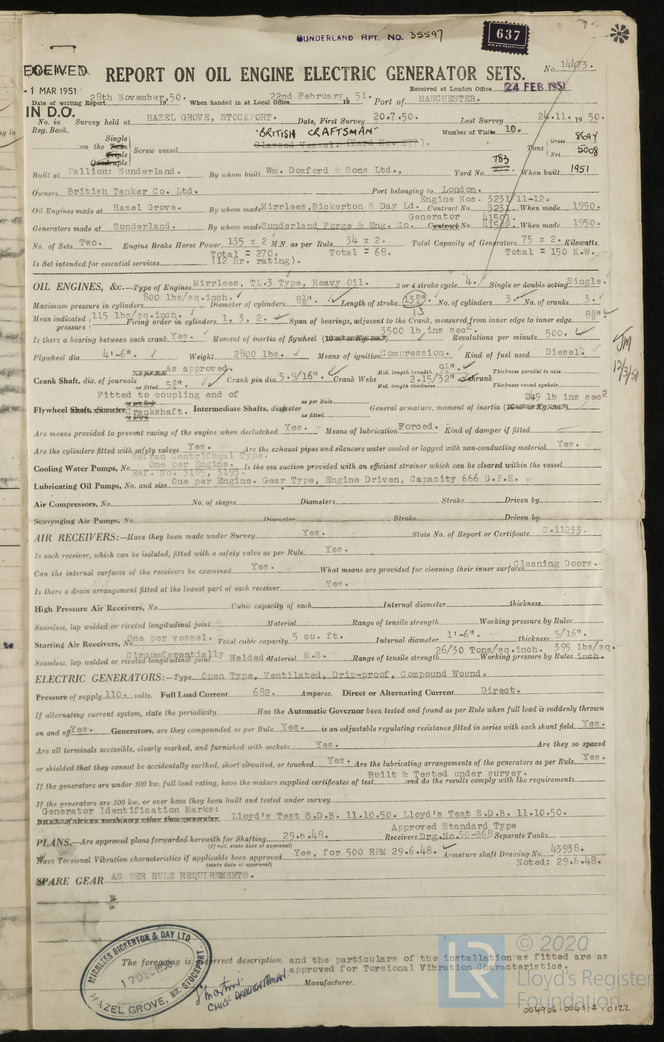 SUNDERLAND RPT. NO. 35597
637
RECEIVED
REPORT ON OIL ENGINE ELECTRIC GENERATOR SETS.
No. 14473.
-1 MAR 1951
Received at London Office 24 FEB 1951
Date of writing Report 28th November, 50. When handed in at Local Office 22nd February, 19 51. Port of MANCHESTER.
IN D.O.
No. in Survey held at HAZEL GROVE, STOCKPORT. Date, First Survey 20.7.50. Last Survey 24.11.1950.
Reg. Book.
"BRITISH CRAFTSMAN"
Number of Visits 10.
Single
on the Twin Triple Quadruple Screw vessel
Classed Vessel. (Yard No. 277).
Tons Gross 8694 Net 5008
Built at Pallion: Sunderland. By whom built Wm. Doxford & Sons Ltd., Yard No. 783 When built 1951
Owners British Tanker Co. Ltd. Port belonging to London.
Engine Nos. 3231/11-12.
Oil Engines made at Hazel Grove. By whom made Mirrlees, Bickerton & Day Ld. Contract No. 3231. When made 1950.
Generator 41501.
Generators made at Sunderland. By whom made Sunderland Forge & Eng. Co. Contract No. 41502. When made 1950.
No. of Sets Two. Engine Brake Horse Power 135 x 2 M.N. as per Rule 34 x 2. Total Capacity of Generators 75 x 2. Kilowatts.
Total = 270. Total = 68. Total = 150 K.W.
Is Set intended for essential services (12 Hr. rating).
OIL ENGINES, &c.—Type of Engines Mirrlees, TL.3 Type, Heavy Oil. 2 or 4 stroke cycle 4. Single or double acting Single.
Maximum pressure in cylinders 800 lbs/sq.inch. Diameter of cylinders 8¾" Length of stroke 13" No. of cylinders 3. No. of cranks 3.
Mean indicated pressure 115 lbs/sq.inch. Firing order in cylinders 1, 3, 2. Span of bearings, adjacent to the Crank, measured from inner edge to inner edge 8¾"
Is there a bearing between each crank Yes. Moment of inertia of flywheel 3500 lb ins sec². Revolutions per minute 500.
Flywheel dia. 4'-6". Weight 2800 lbs. Means of ignition Compression. Kind of fuel used Diesel.
As approved.
Crank Shaft, dia. of journals as fitted Crank pin dia. 5.9/16" Crank Webs Mid. length breadth Mid. length thickness 2.15/32" shrunk Thickness parallel to axis Thickness round eyehole
Fitted to coupling end of 249 lb ins sec²
Flywheel Shaft, diameter Crankshaft. Intermediate Shafts, diameter as per Rule as fitted General armature, moment of inertia
Are means provided to prevent racing of the engine when declutched Yes. Means of lubrication Forced. Kind of damper if fitted
Are the cylinders fitted with safety valves Yes. Are the exhaust pipes and silencers water cooled or lagged with non-conducting material Yes.
Centrifugal Type.
Cooling Water Pumps, No. One per Engine. Is the sea suction provided with an efficient strainer which can be cleared within the vessel
Lubricating Oil Pumps, No. and size One per Engine. Gear Type, Engine Driven, Capacity 666 G.P.H.
Air Compressors, No. No. of stages Diameters Stroke Driven by
Scavenging Air Pumps, No. Diameter Stroke Driven by
AIR RECEIVERS:—Have they been made under Survey Yes. State No. of Report or Certificate C.11233.
Is each receiver, which can be isolated, fitted with a safety valve as per Rule Yes.
Can the internal surfaces of the receivers be examined Yes. What means are provided for cleaning their inner surfaces Cleaning Doors.
Is there a drain arrangement fitted at the lowest part of each receiver Yes.
High Pressure Air Receivers, No. Cubic capacity of each Internal diameter thickness
Seamless, lap welded or riveted longitudinal joint Material Range of tensile strength Working pressure by Rules
Starting Air Receivers, No. One per vessel. Total cubic capacity 5 cu. ft. Internal diameter 1'-6". thickness 5/16".
Seamless, lap welded or riveted longitudinal joint Circumferentially Welded Material M.S. Range of tensile strength 26/30 Tons/sq.inch. Working pressure by Rules 395 lbs/sq.inch.
ELECTRIC GENERATORS:—Type Open Type, Ventilated, Drip-proof, Compound Wound.
Pressure of supply 110. volts. Full Load Current 682. Amperes. Direct or Alternating Current Direct.
If alternating current system, state the periodicity Has the Automatic Governor been tested and found as per Rule when full load is suddenly thrown
on and off Yes. Generators, are they compounded as per Rule Yes. is an adjustable regulating resistance fitted in series with each shunt field Yes.
Are all terminals accessible, clearly marked, and furnished with sockets Yes. Are they so spaced
or shielded that they cannot be accidentally earthed, short circuited, or touched Yes. Are the lubricating arrangements of the generators as per Rule Yes.
Built & Tested under survey.
If the generators are under 100 kw. full load rating, have the makers supplied certificates of test and do the results comply with the requirements
If the generators are 100 kw. or over have they been built and tested under survey
Generator Identification Marks: Lloyd's Test S.D.B. 11.10.50. Lloyd's Test S.D.B. 11.10.50.
Approved Standard Type
PLANS.—Are approved plans forwarded herewith for Shafting 29.6.48. Receivers Drg.No.50-268 Separate Tanks
(If not, state date of approval)
Have Torsional Vibration characteristics if applicable been approved Yes, for 500 RPM 29.6.48. Armature shaft Drawing No. 43938.
(state date of approval) Noted: 29.6.48.
SPARE GEAR AS PER RULE REQUIREMENTS.
JM
12/3/51
MIRRLEES BICKERTON & DAY LTD
19 DEC 1950
HAZEL GROVE, NR. STOCKPORT
The foregoing is a correct description, and the particulars of the installation as fitted are as
approved for Torsional Vibration Characteristics.
CHIEF DRAUGHTSMAN
Manufacturer.
© 2020
LR
Lloyd's Register
Foundation